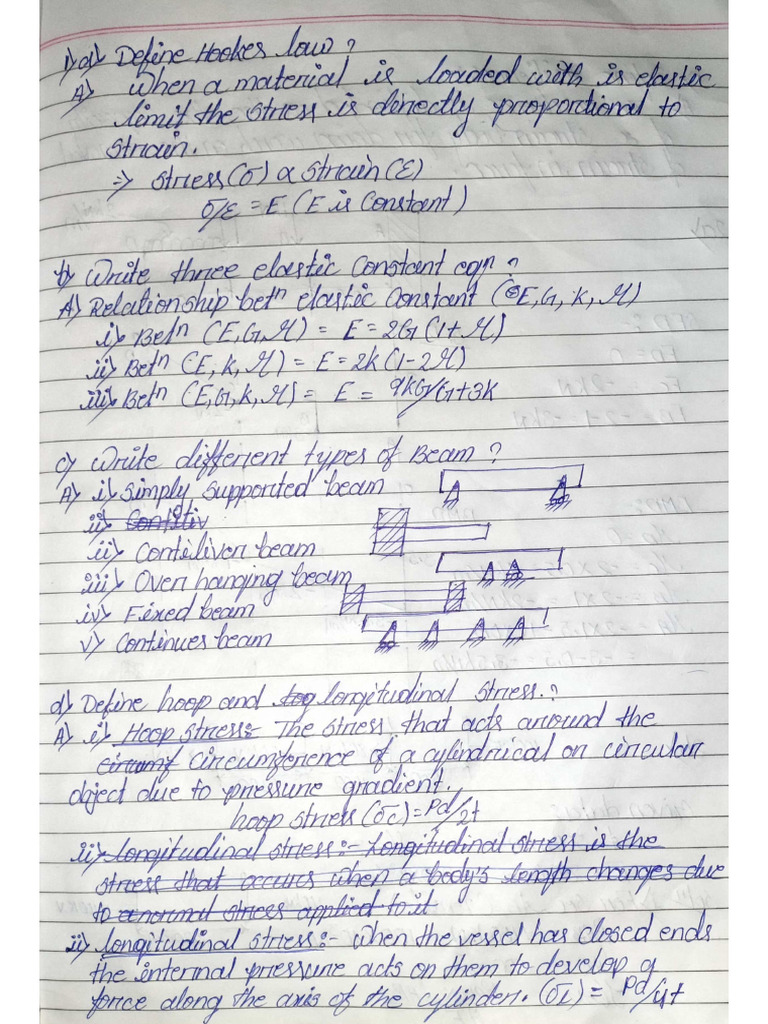 1) a) Define Hookes law ?
A) When a material is loaded with is elastic
limit the stress is directly proportional to
strain.
⇒ stress (σ) α strain (ε)
σ/ε = E (E is Constant)
b) Write three elastic Constant eqn ?
A) Relationship betn elastic Constant (E, G, K, M)
i) Betn (E, G, M) = E = 2G (1 + M)
ii) Betn (E, K, M) = E = 2K (1 - 2M)
iii) Betn (E, G, K, M) = E = 9KG/G+3K
c) Write different types of Beam ?
A) i) Simply supported beam
ii) Conteliver beam
iii) Over hanging beam
iv) Fixed beam
v) Continues beam
d) Define hoop and longitudinal stress. ?
A) i) Hoop stress:- The stress that acts around the
circumference of a cylindrical on circular
object due to pressure gradient.
hoop stress (σc) = Pd/2t
ii) longitudinal stress:- Longitudinal stress is the
stress that occurs when a body's length changes due
to a normal stress applied to it
ii) longitudinal stress:- When the vessel has closed ends
the internal pressure acts on them to develop a
force along the axis of the cylinder. (σl) = Pd/4t